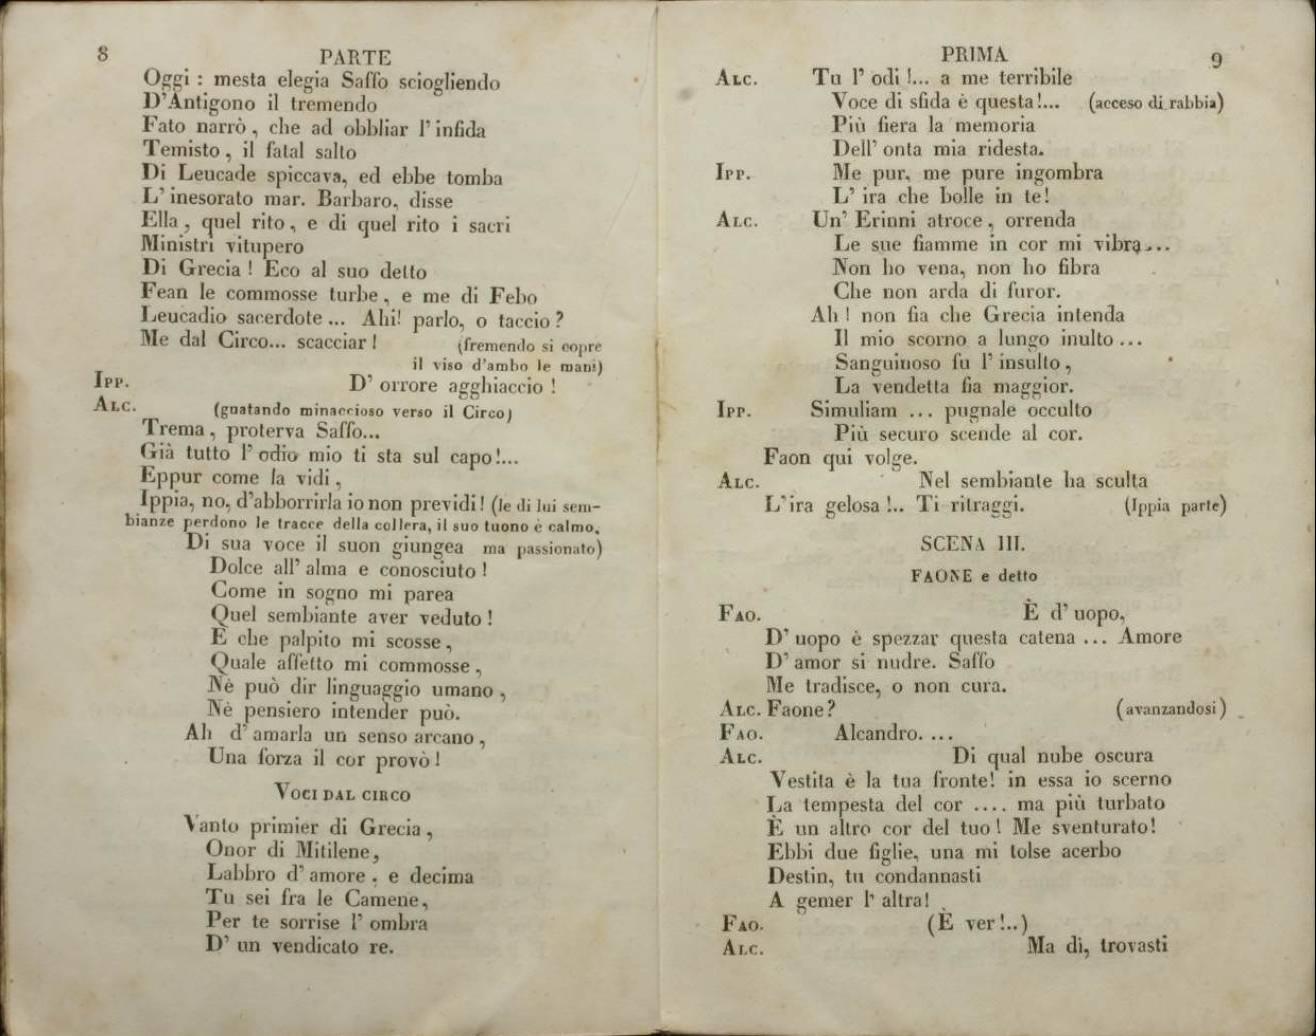 8 PARTE
Oggi : mesta elegia Saffo sciogliendo
D'Antigono il tremendo
Fato narrò, che ad obbliar l'infida
Temisto, il fatal salto
Di Leucade spiccava, ed ebbe tomba
L'inesorato mar. Barbaro, disse
Ella, quel rito, e di quel rito i sacri
Ministri vitupero
Di Grecia ! Eco al suo detto
Fean le commosse turbe, e me di Febo
Leucadio sacerdote ... Ahi! parlo, o taccio ?
Me dal Circo... scacciar ! (fremendo si copre
il viso d'ambo le mani)
IPP. D'orrore agghiaccio !
ALC. (guatando minaccioso verso il Circo)
Trema, proterva Saffo...
Già tutto l'odio mio ti sta sul capo!...
Eppur come la vidi,
Ippia, no, d'abborrirla io non previdi ! (le di lui sem-
bianze perdono le tracce della collera, il suo tuono è calmo,
Di sua voce il suon giungea ma passionato)
Dolce all'alma e conosciuto !
Come in sogno mi parea
Quel sembiante aver veduto !
E che palpito mi scosse,
Quale affetto mi commosse,
Nè può dir linguaggio umano,
Nè pensiero intender può.
Ah d'amarla un senso arcano,
Una forza il cor provò !
VOCI DAL CIRCO
Vanto primier di Grecia,
Onor di Mitilene,
Labbro d'amore, e decima
Tu sei fra le Camene,
Per te sorrise l'ombra
D'un vendicato re.
PRIMA 9
ALC. Tu l'odi !... a me terribile
Voce di sfida è questa !... (acceso di rabbia)
Più fiera la memoria
Dell'onta mia ridesta.
IPP. Me pur, me pure ingombra
L'ira che bolle in te !
ALC. Un'Erinni atroce, orrenda
Le sue fiamme in cor mi vibra...
Non ho vena, non ho fibra
Che non arda di furor.
Ah ! non fia che Grecia intenda
Il mio scorno a lungo inulto ...
Sanguinoso fu l'insulto,
La vendetta fia maggior.
IPP. Simuliam ... pugnale occulto
Più securo scende al cor.
Faon qui volge.
ALC. Nel sembiante ha sculta
L'ira gelosa !.. Ti ritraggi. (Ippia parte)
SCENA III.
FAONE e detto
FAO. È d'uopo,
D'uopo è spezzar questa catena ... Amore
D'amor si nudre. Saffo
Me tradisce, o non cura.
ALC. Faone ? (avanzandosi)
FAO. Alcandro. ...
ALC. Di qual nube oscura
Vestita è la tua fronte! in essa io scerno
La tempesta del cor .... ma più turbato
È un altro cor del tuo ! Me sventurato!
Ebbi due figlie, una mi tolse acerbo
Destin, tu condannasti
A gemer l'altra!
FAO. (È ver !..)
ALC. Ma dì, trovasti